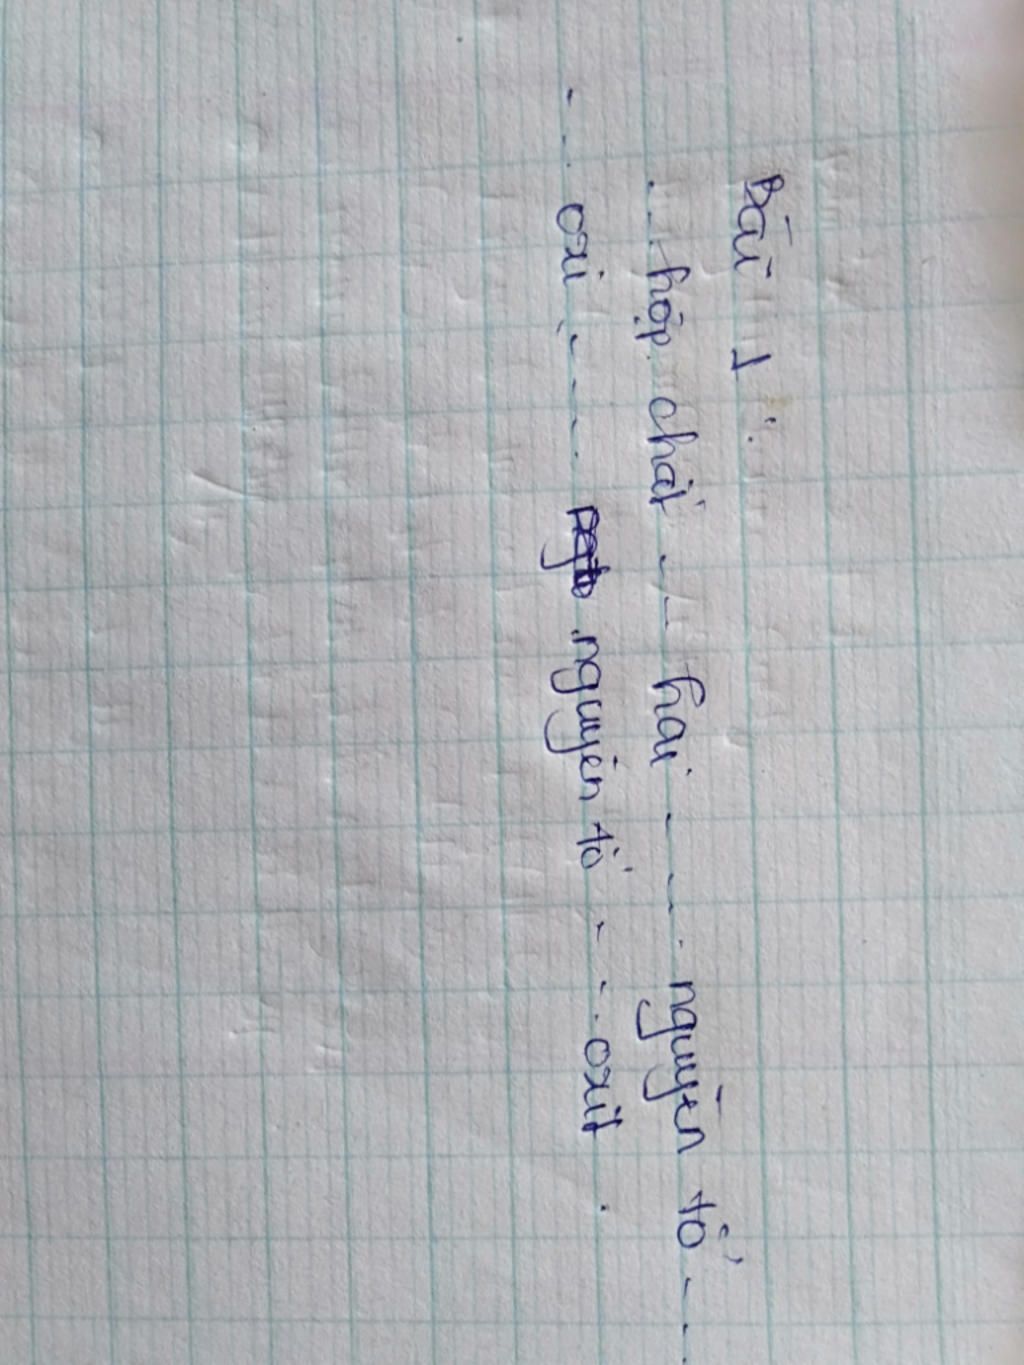 Bài 1:
... hợp chất --- hai ---. nguyên tố --
-.. oxi ,---- nguyên tố --. oxit .